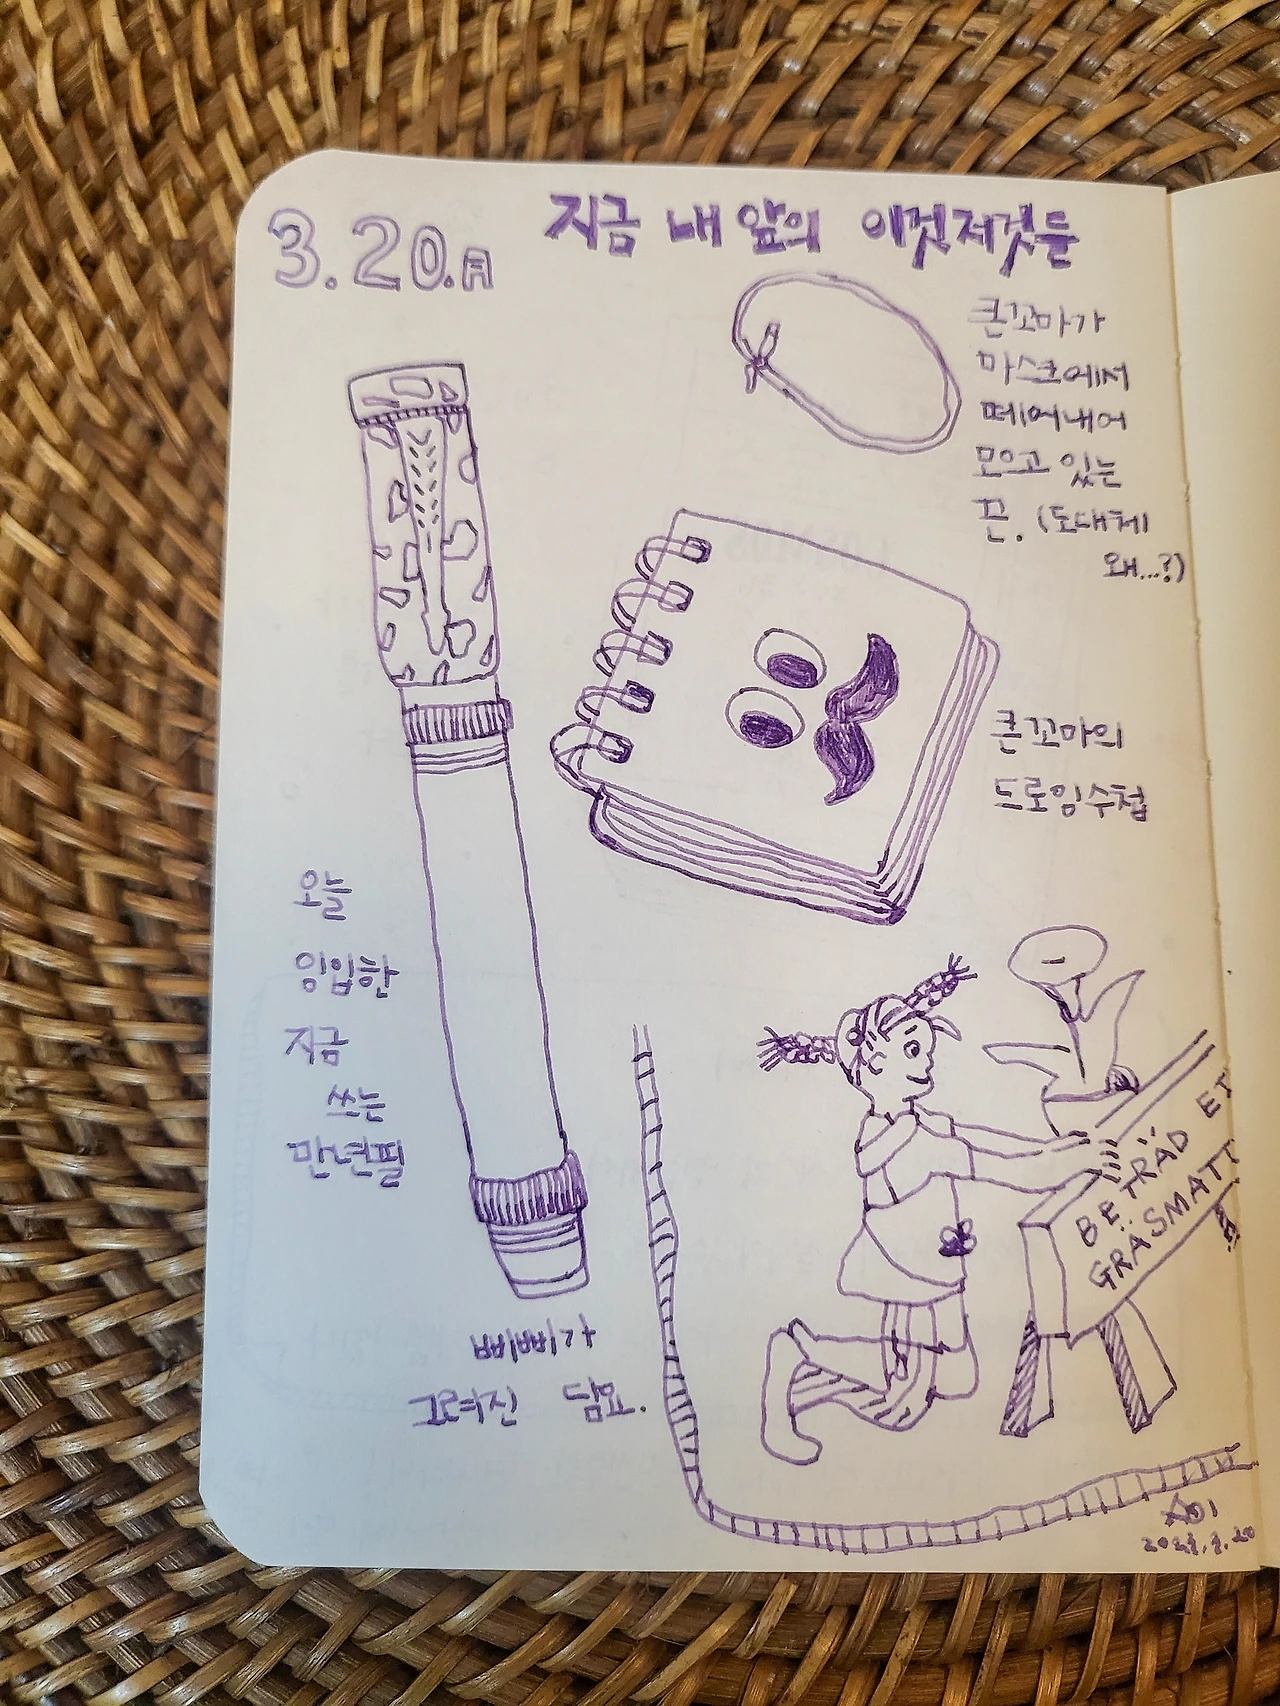 3.20.月
지금 내 앞의 이것저것들
큰꼬마가
마스크에서
떼어내어
모으고 있는
끈. (도대체
왜...?)
큰꼬마의
드로잉수첩
오늘
잉입한
지금
쓰는
만년필
삐삐가
그려진 담요.
BETRÄD EJ
GRÄSMATT